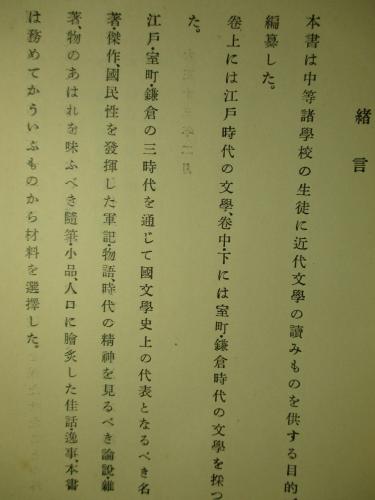 緒言
本書は中等諸學校の生徒に近代文學の讀みものを供する目的
編纂した。
卷上には江戸時代の文學、卷中・下には室町・鎌倉時代の文學を採つ
た。
江戸・室町・鎌倉の三時代を通じて國文學史上の代表となるべき名
著・傑作、國民性を發揮した軍記・物語、時代の精神を見るべき論説・雜
著、物のあはれを味ふべき隨筆・小品、人口に膾炙した佳話・逸事、本書
は務めてかういふものから材料を選擇した。